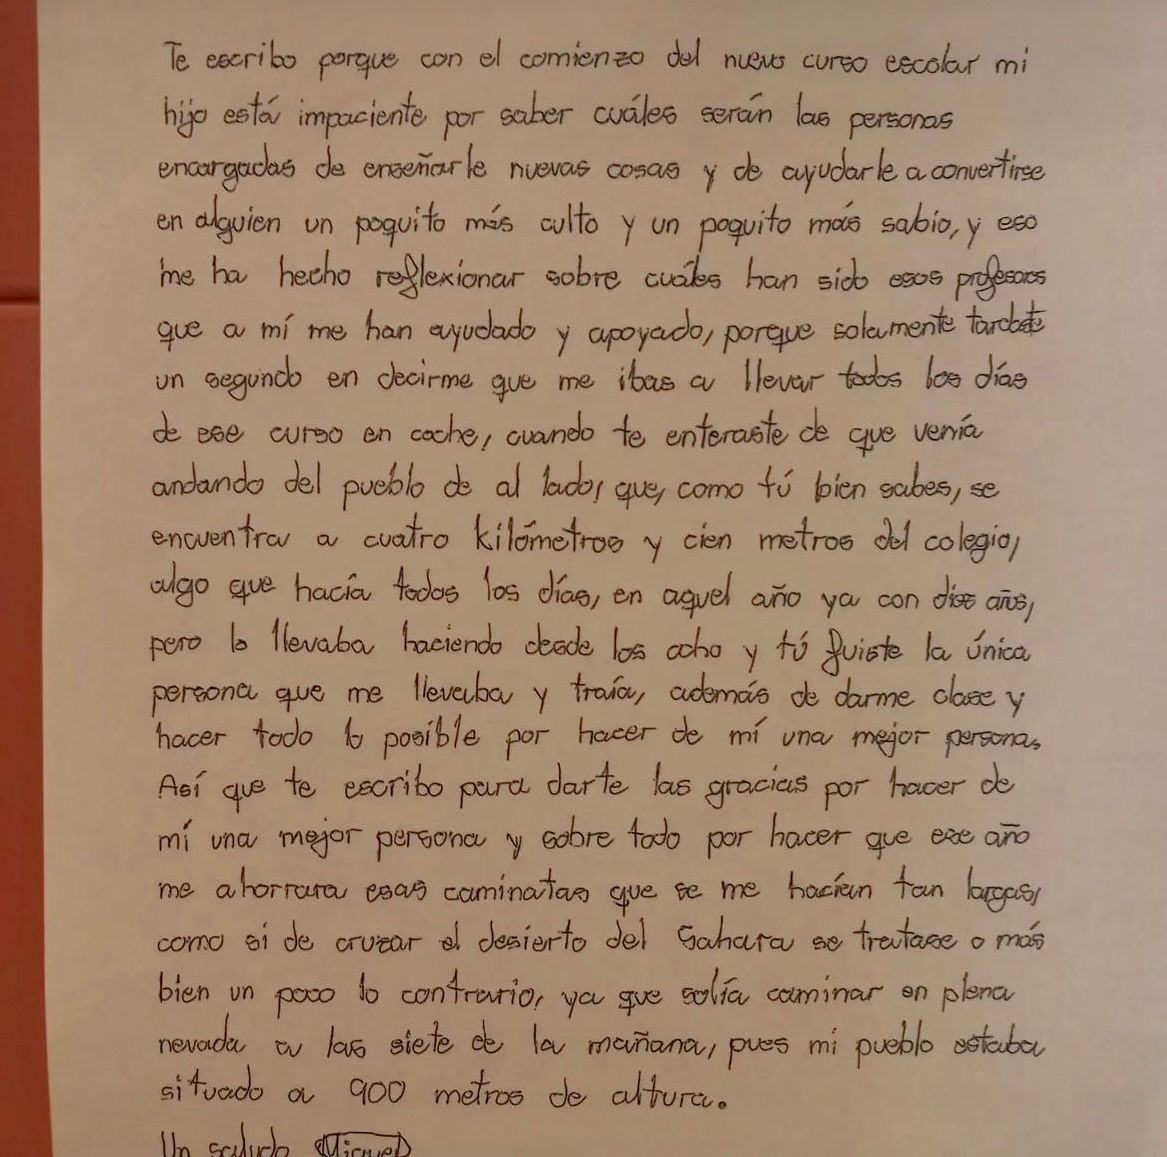 Te escribo porque con el comienzo del nuevo curso escolar mi
hijo está impaciente por saber cuáles serán las personas
encargadas de enseñarle nuevas cosas y de ayudarle a convertirse
en alguien un poquito más culto y un poquito más sabio, y eso
me ha hecho reflexionar sobre cuáles han sido esos profesores
que a mí me han ayudado y apoyado, porque solamente tardaste
un segundo en decirme que me ibas a llevar todos los días
de ese curso en coche, cuando te enteraste de que venía
andando del pueblo de al lado, que, como tú bien sabes, se
encuentra a cuatro kilómetros y cien metros del colegio,
algo que hacía todos los días, en aquel año ya con diez años,
pero lo llevaba haciendo desde los ocho y tú fuiste la única
persona que me llevaba y traía, además de darme clase y
hacer todo lo posible por hacer de mí una mejor persona.
Así que te escribo para darte las gracias por hacer de
mí una mejor persona y sobre todo por hacer que ese año
me ahorrara esas caminatas que se me hacían tan largas,
como si de cruzar el desierto del Sahara se tratase o más
bien un poco lo contrario, ya que solía caminar en plena
nevada a las siete de la mañana, pues mi pueblo estaba
situado a 900 metros de altura.
Un saludo Miguel